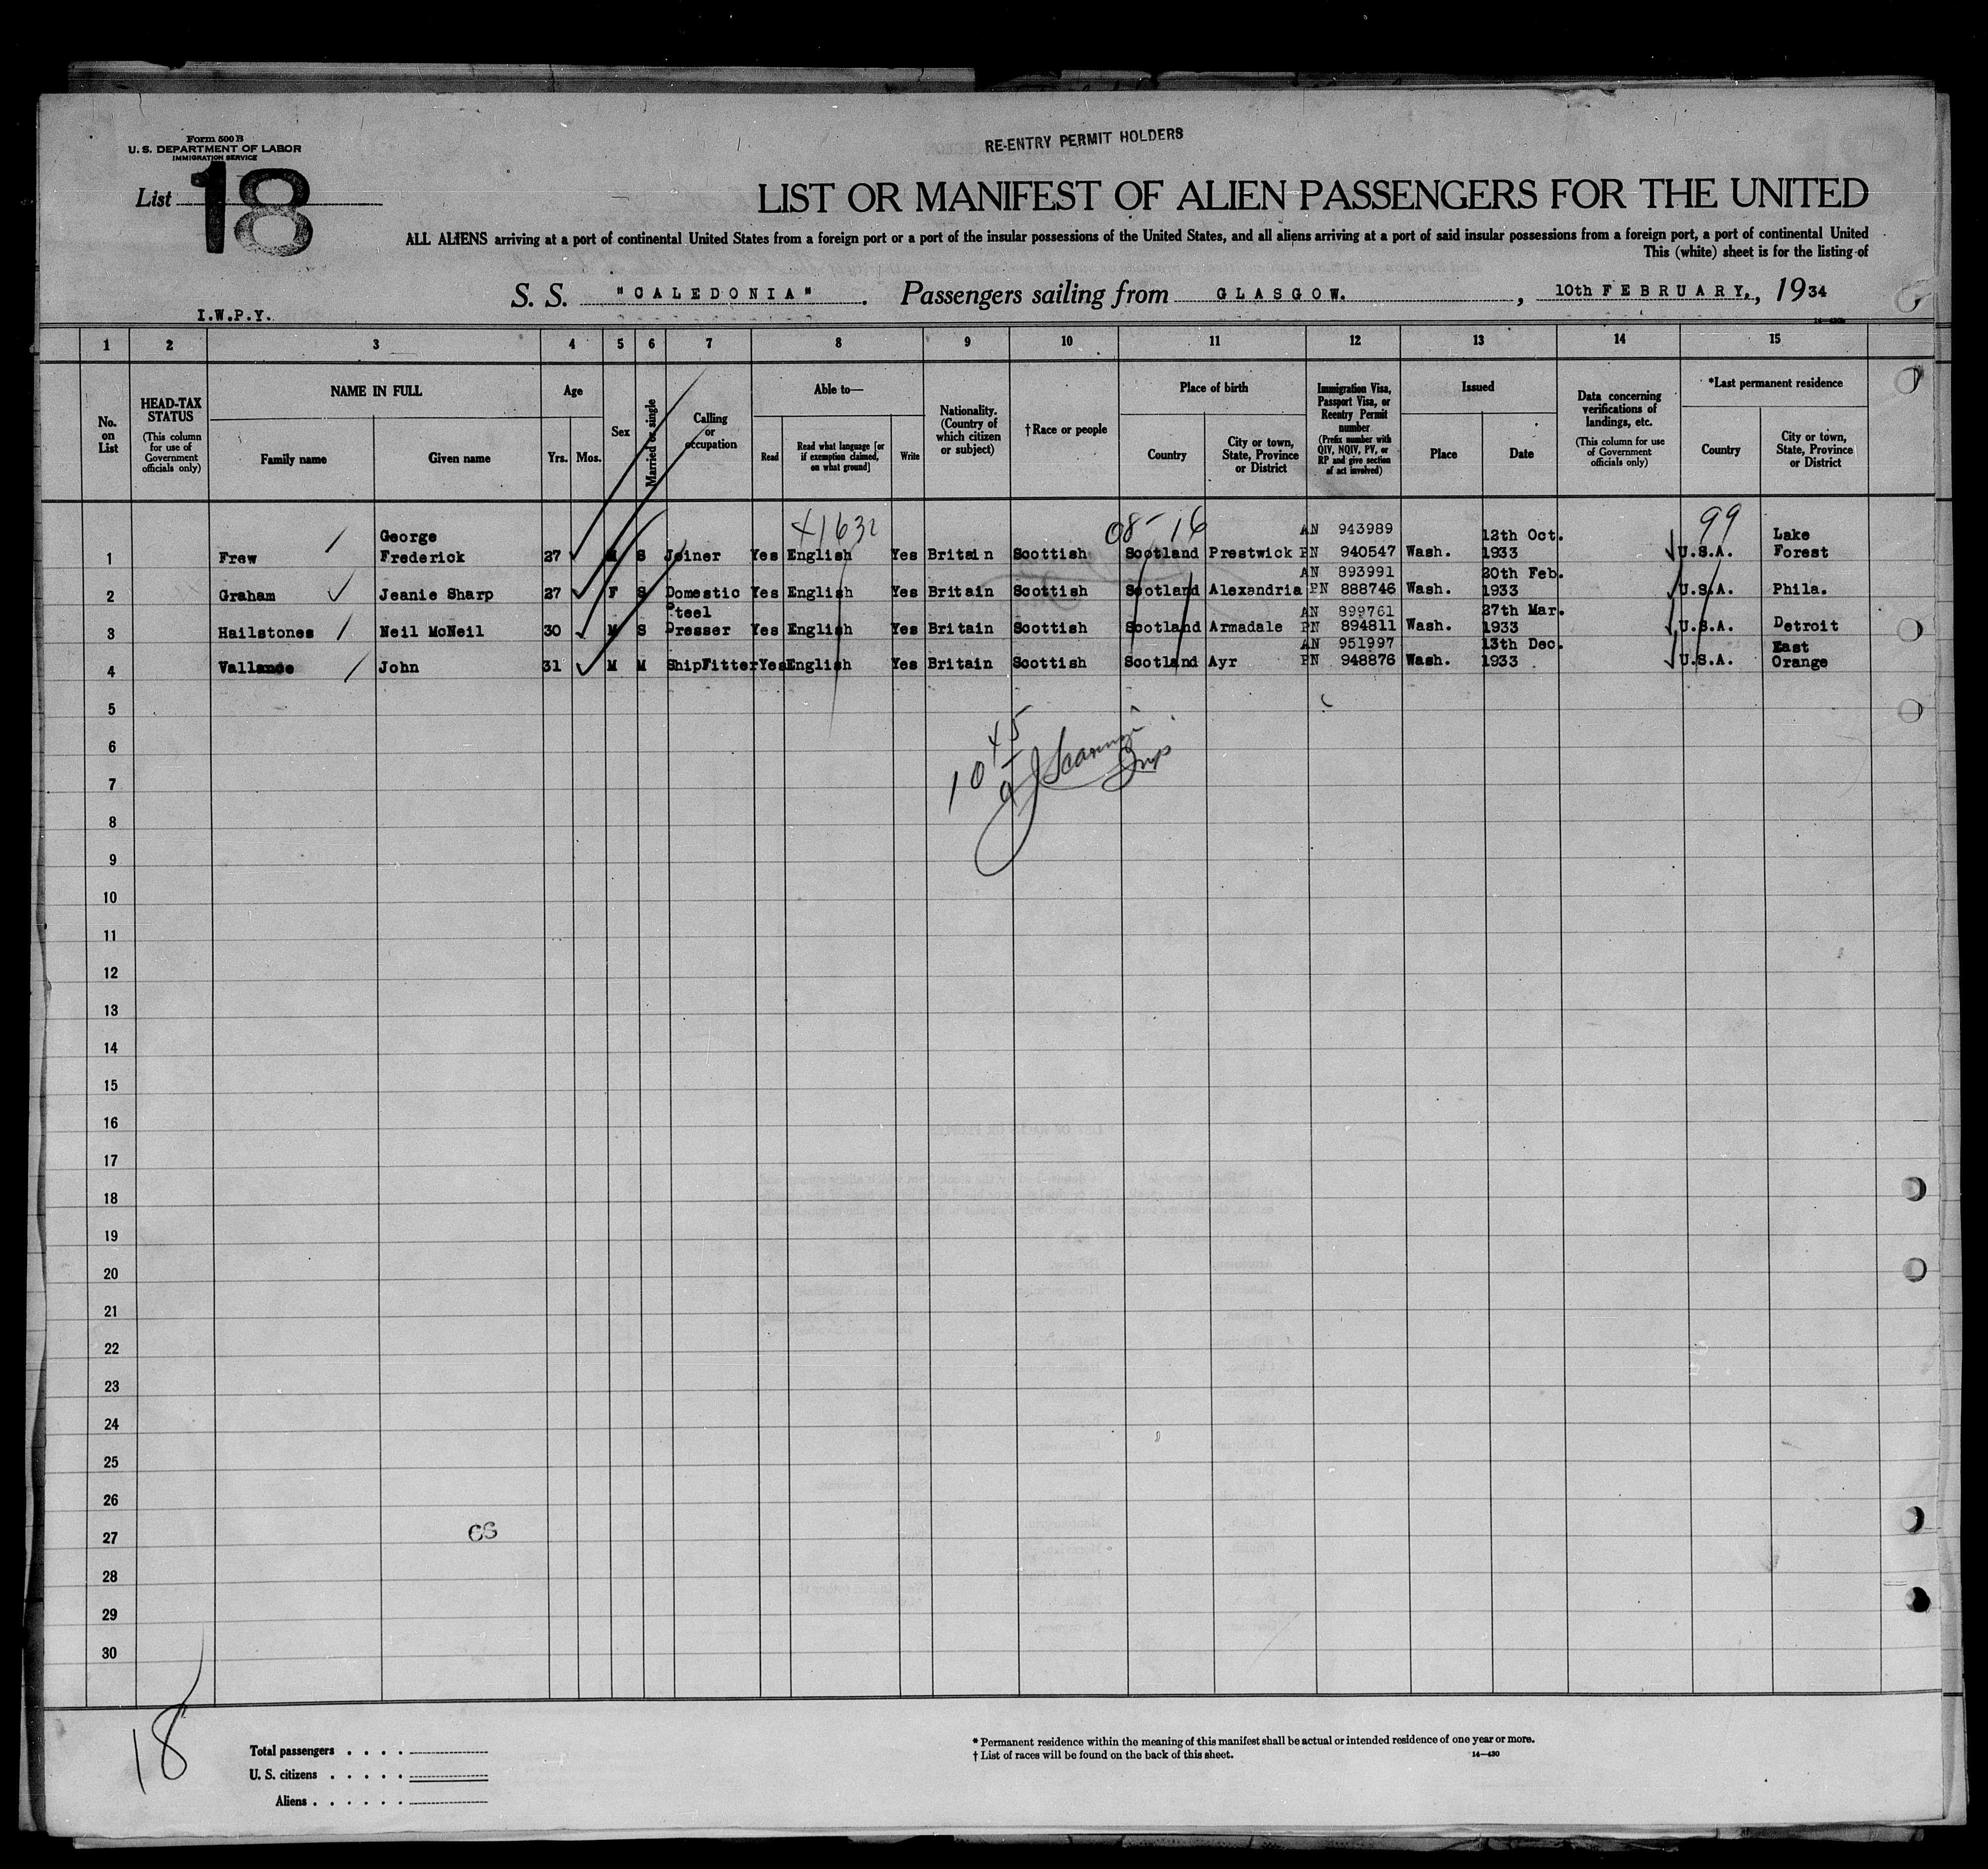 Form 500 B
U. S. DEPARTMENT OF LABOR
IMMIGRATION SERVICE
RE-ENTRY PERMIT HOLDERS
List 18
LIST OR MANIFEST OF ALIEN PASSENGERS FOR THE UNITED
ALL ALIENS arriving at a port of continental United States from a foreign port or a port of the insular possessions of the United States, and all aliens arriving at a port of said insular possessions from a foreign port, a port of continental United
This (white) sheet is for the listing of
S. S. "CALEDONIA". Passengers sailing from GLASGOW., 10th FEBRUARY,, 1934
I.W.P.Y.
1 2 3 4 5 6 7 8 9 10 11 12 13 14 15
No. on List
HEAD-TAX STATUS
(This column for use of Government officials only)
NAME IN FULL
Family name Given name
Age
Yrs. Mos.
Sex
Married or single
Calling or occupation
Able to—
Read Read what language [or if exemption claimed, on what ground] Write
Nationality. (Country of which citizen or subject)
†Race or people
Place of birth
Country City or town, State, Province or District
Immigration Visa, Passport Visa, or Reentry Permit number
(Prefix number with QIV, NQIV, PV, or RP and give section of act involved)
Issued
Place Date
Data concerning verifications of landings, etc.
(This column for use of Government officials only)
*Last permanent residence
Country City or town, State, Province or District
41632 08-16 99
George AN 943989 12th Oct. Lake
1 Frew Frederick 27 M S Joiner Yes English Yes Britain Scottish Scotland Prestwick PN 940547 Wash. 1933 U.S.A. Forest
AN 893991 20th Feb.
2 Graham Jeanie Sharp 27 F S Domestic Yes English Yes Britain Scottish Scotland Alexandria PN 888746 Wash. 1933 U.S.A. Phila.
Steel AN 899761 27th Mar.
3 Hailstones Neil McNeil 30 M S Dresser Yes English Yes Britain Scottish Scotland Armadale PN 894811 Wash. 1933 U.S.A. Detroit
AN 951997 13th Dec. East
4 Vallance John 31 M M ShipFitter Yes English Yes Britain Scottish Scotland Ayr PN 948876 Wash. 1933 U.S.A. Orange
5
6
1045
7
8
9
10
11
12
13
14
15
16
17
18
19
20
21
22
23
24
25
26
27
28
29
30
18
Total passengers
U. S. citizens
Aliens
* Permanent residence within the meaning of this manifest shall be actual or intended residence of one year or more.
† List of races will be found on the back of this sheet.
14—430